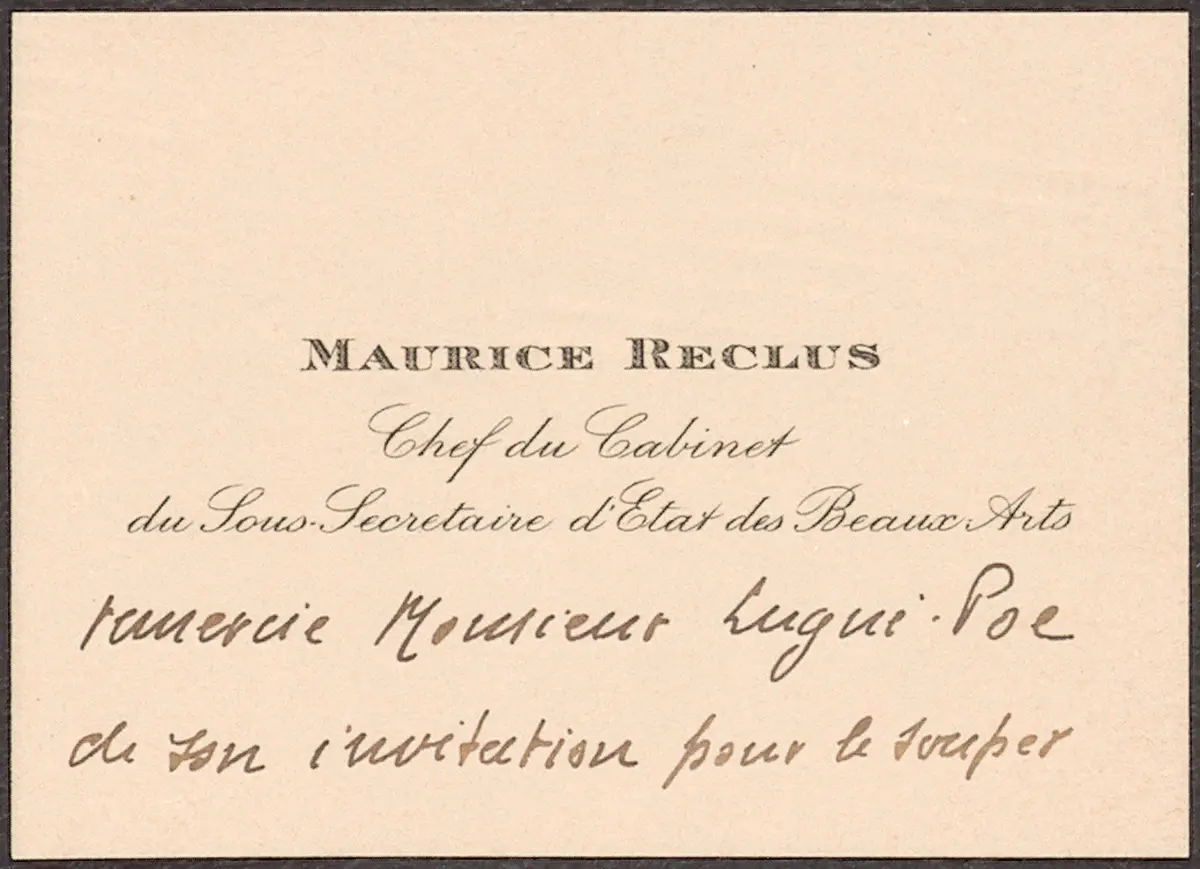 MAURICE RECLUS
Chef du Cabinet
du Sous-Secretaire d'Etat des Beaux-Arts
remercie Monsieur Lugné-Poe
de son invitation pour le souper